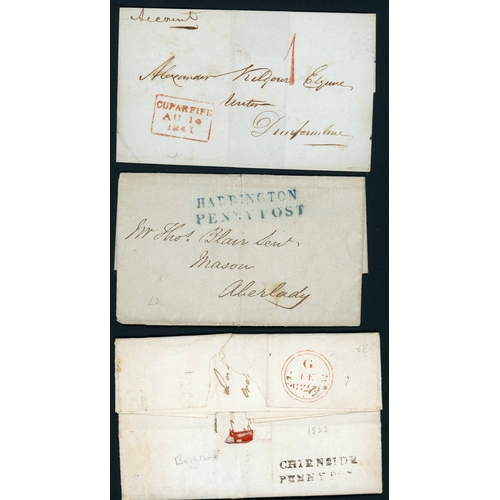 Account
1
Alexander Kidgour Esquire
Writer
Dunfermline
CUPAR FIFE
AU 10
1841
HADDINGTON
PENNY POST
Mr Thos. Blair Senr
Mason
Aberlady
G
1822
CHIRNSIDE
PENNY POST